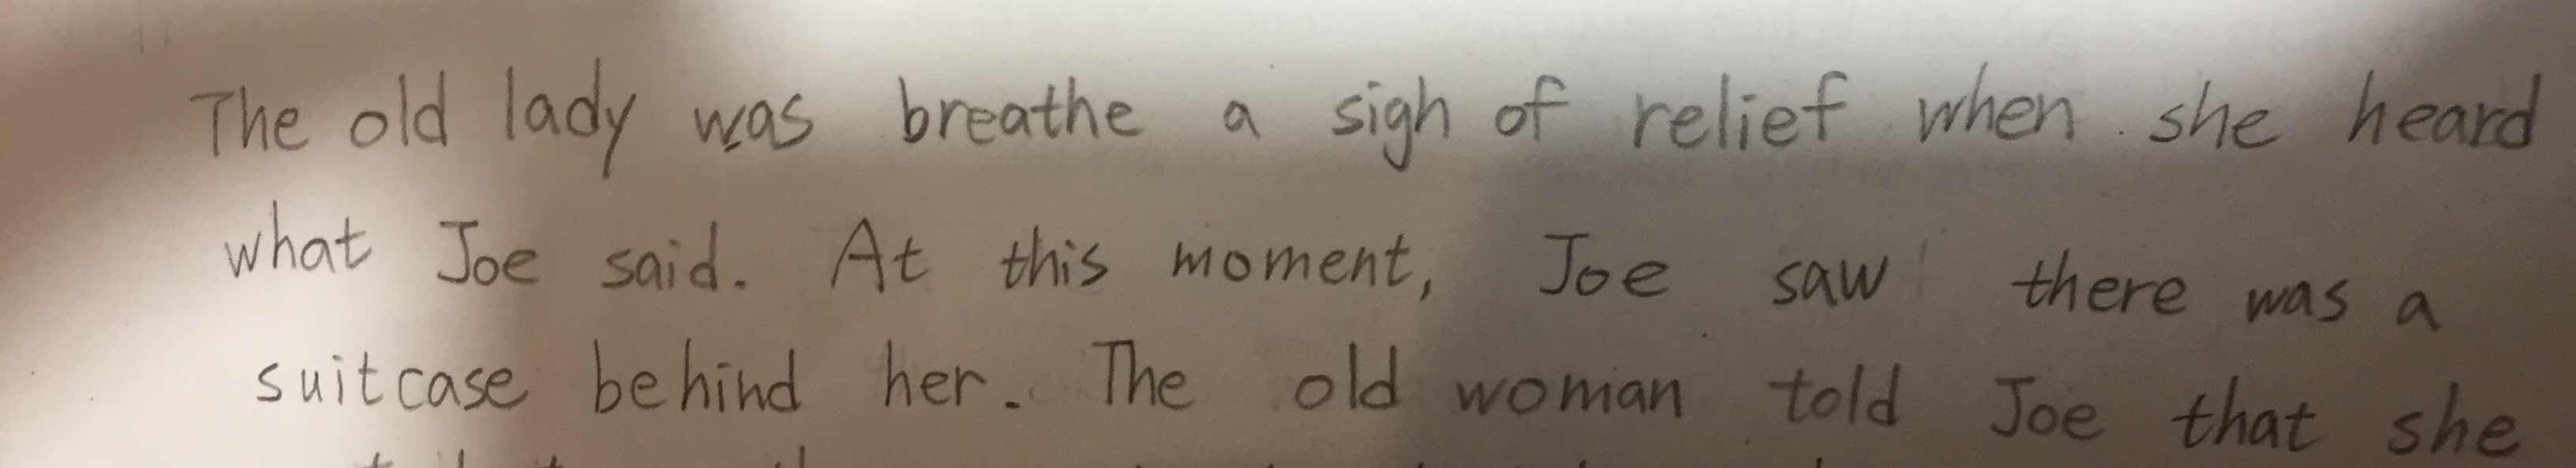 The old lady was breathe a sigh of relief when she heard
what Joe said. At this moment, Joe saw there was a
suitcase behind her. The old woman told Joe that she